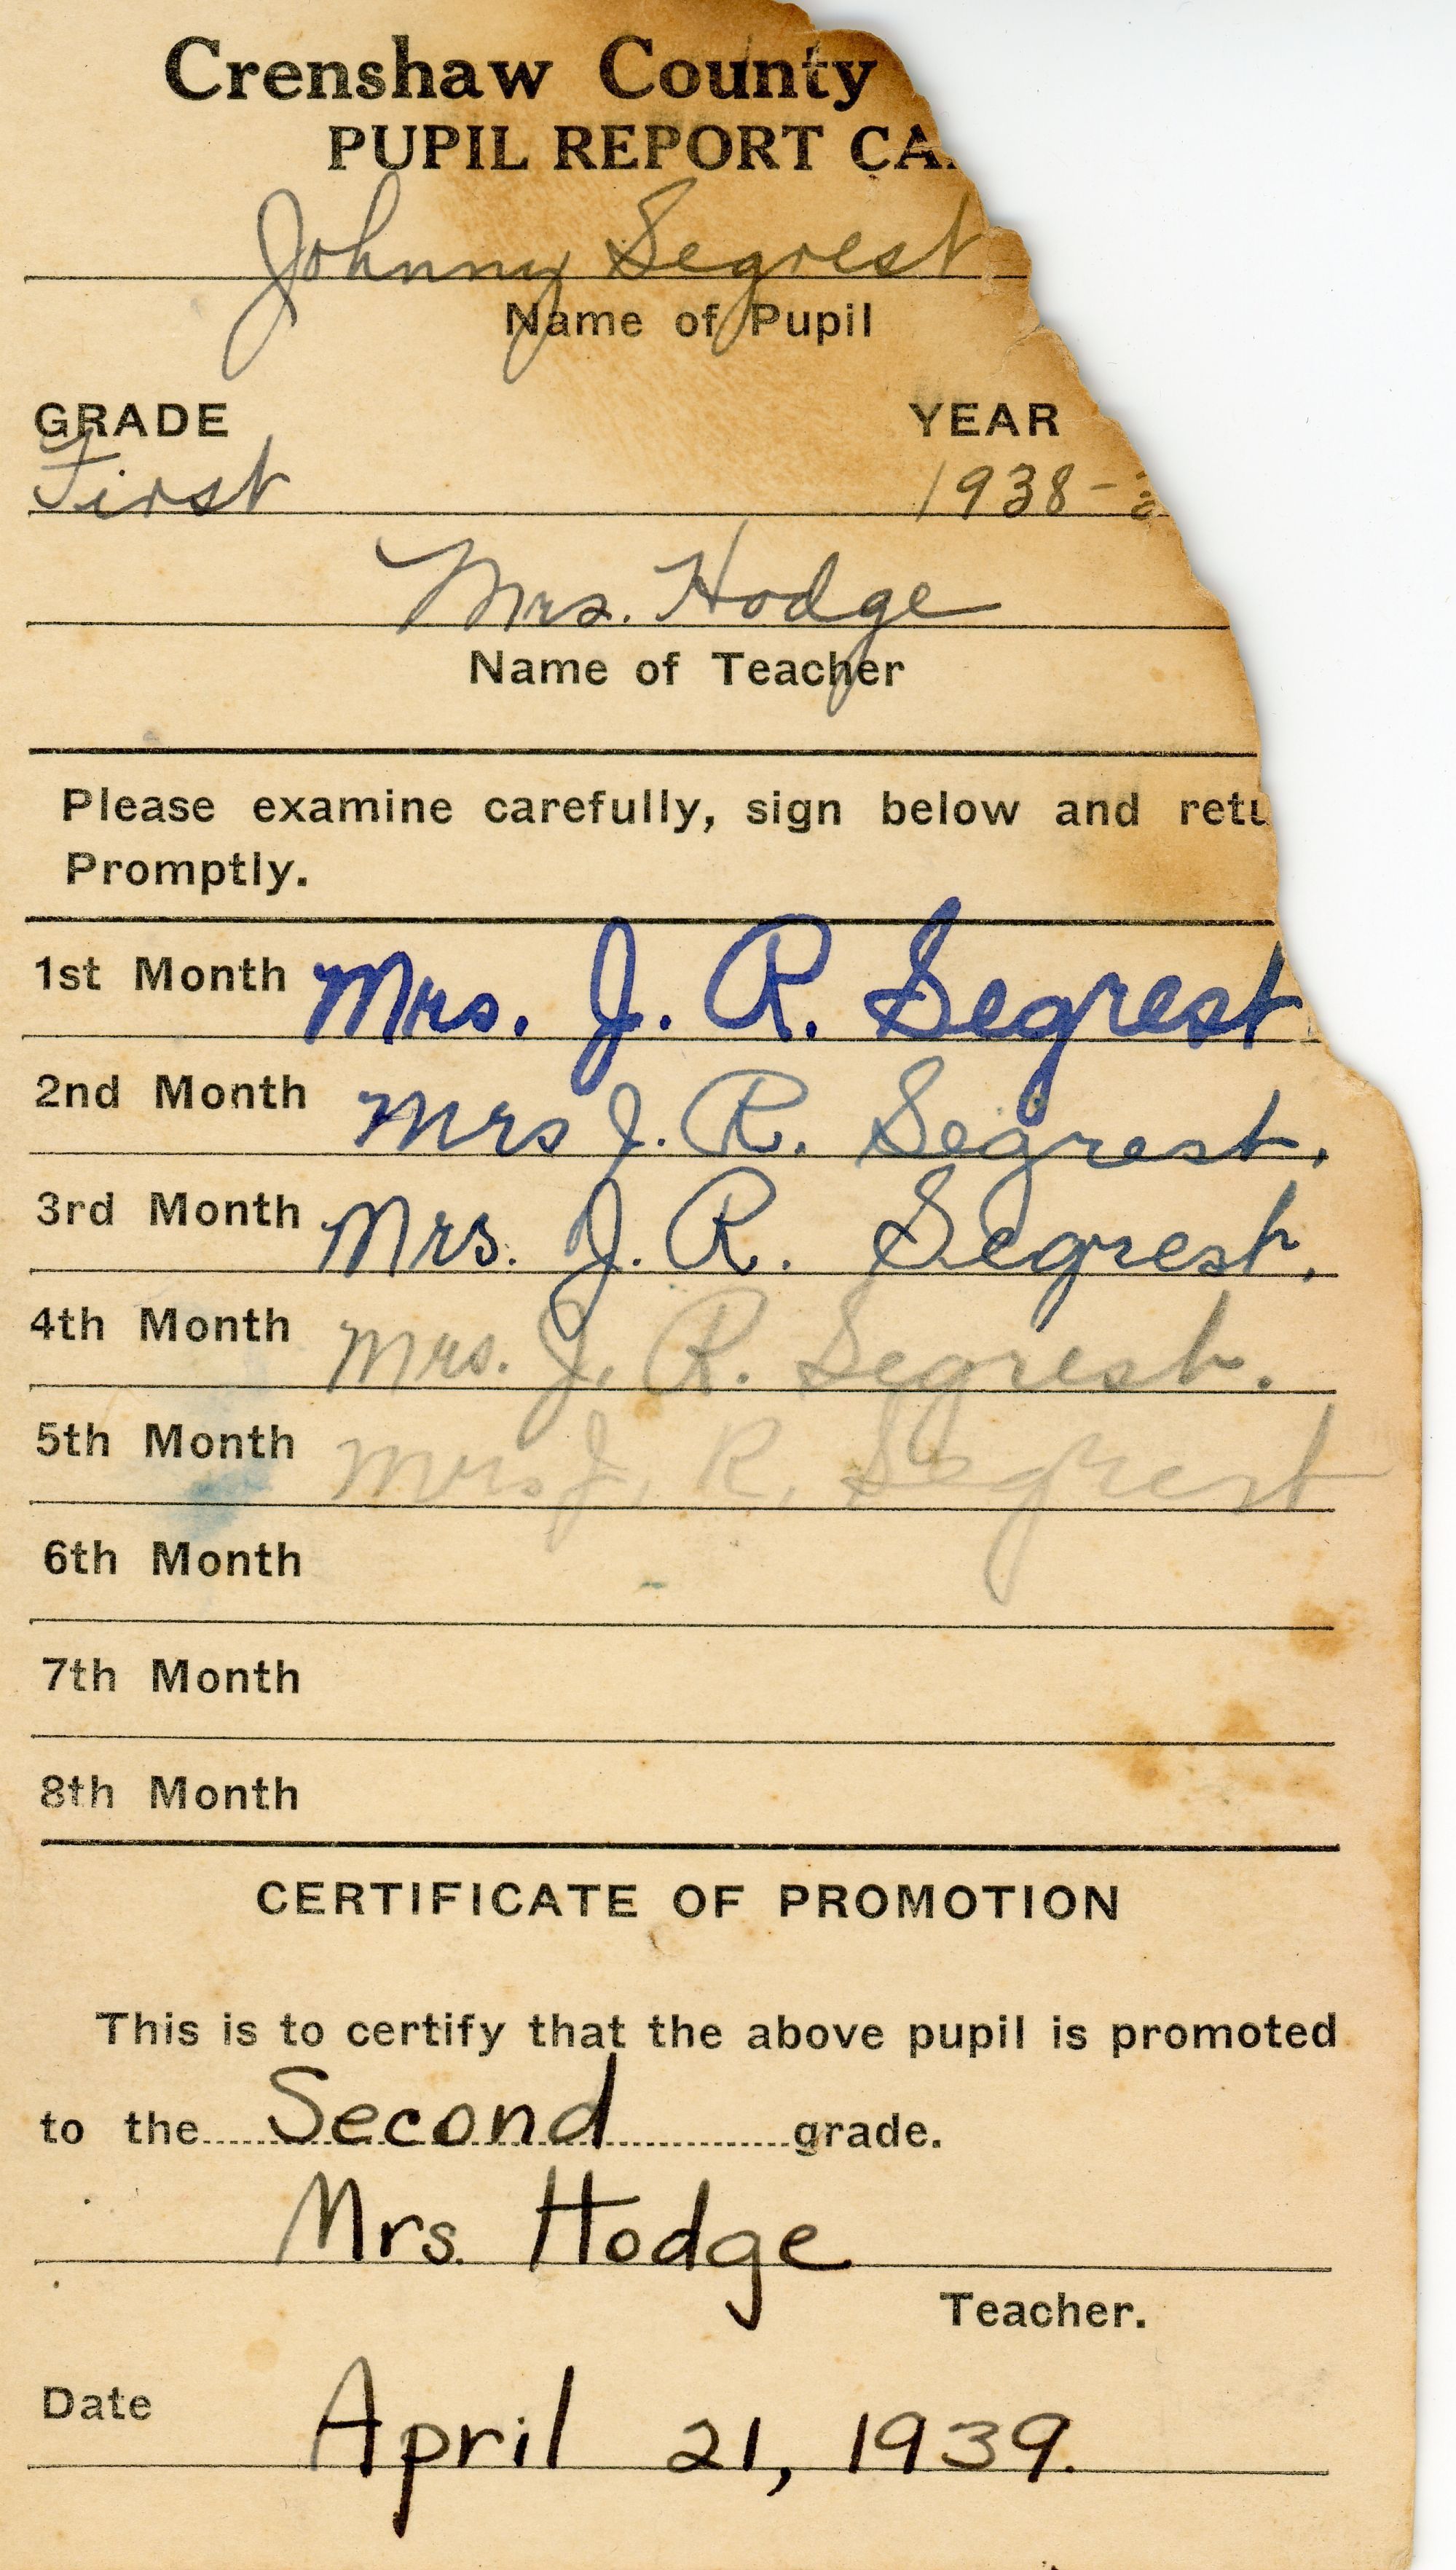 Crenshaw County
PUPIL REPORT CA
Johnny Segrest
Name of Pupil
GRADE YEAR
First 1938-3
Mrs. Hodge
Name of Teacher
Please examine carefully, sign below and retu
Promptly.
1st Month Mrs. J. R. Segrest
2nd Month Mrs J. R. Segrest.
3rd Month Mrs. J. R. Segrest.
4th Month Mrs. J. R. Segrest.
5th Month Mrs J. R. Segrest
6th Month
7th Month
8th Month
CERTIFICATE OF PROMOTION
This is to certify that the above pupil is promoted
to the Second grade.
Mrs. Hodge
Teacher.
Date April 21, 1939.